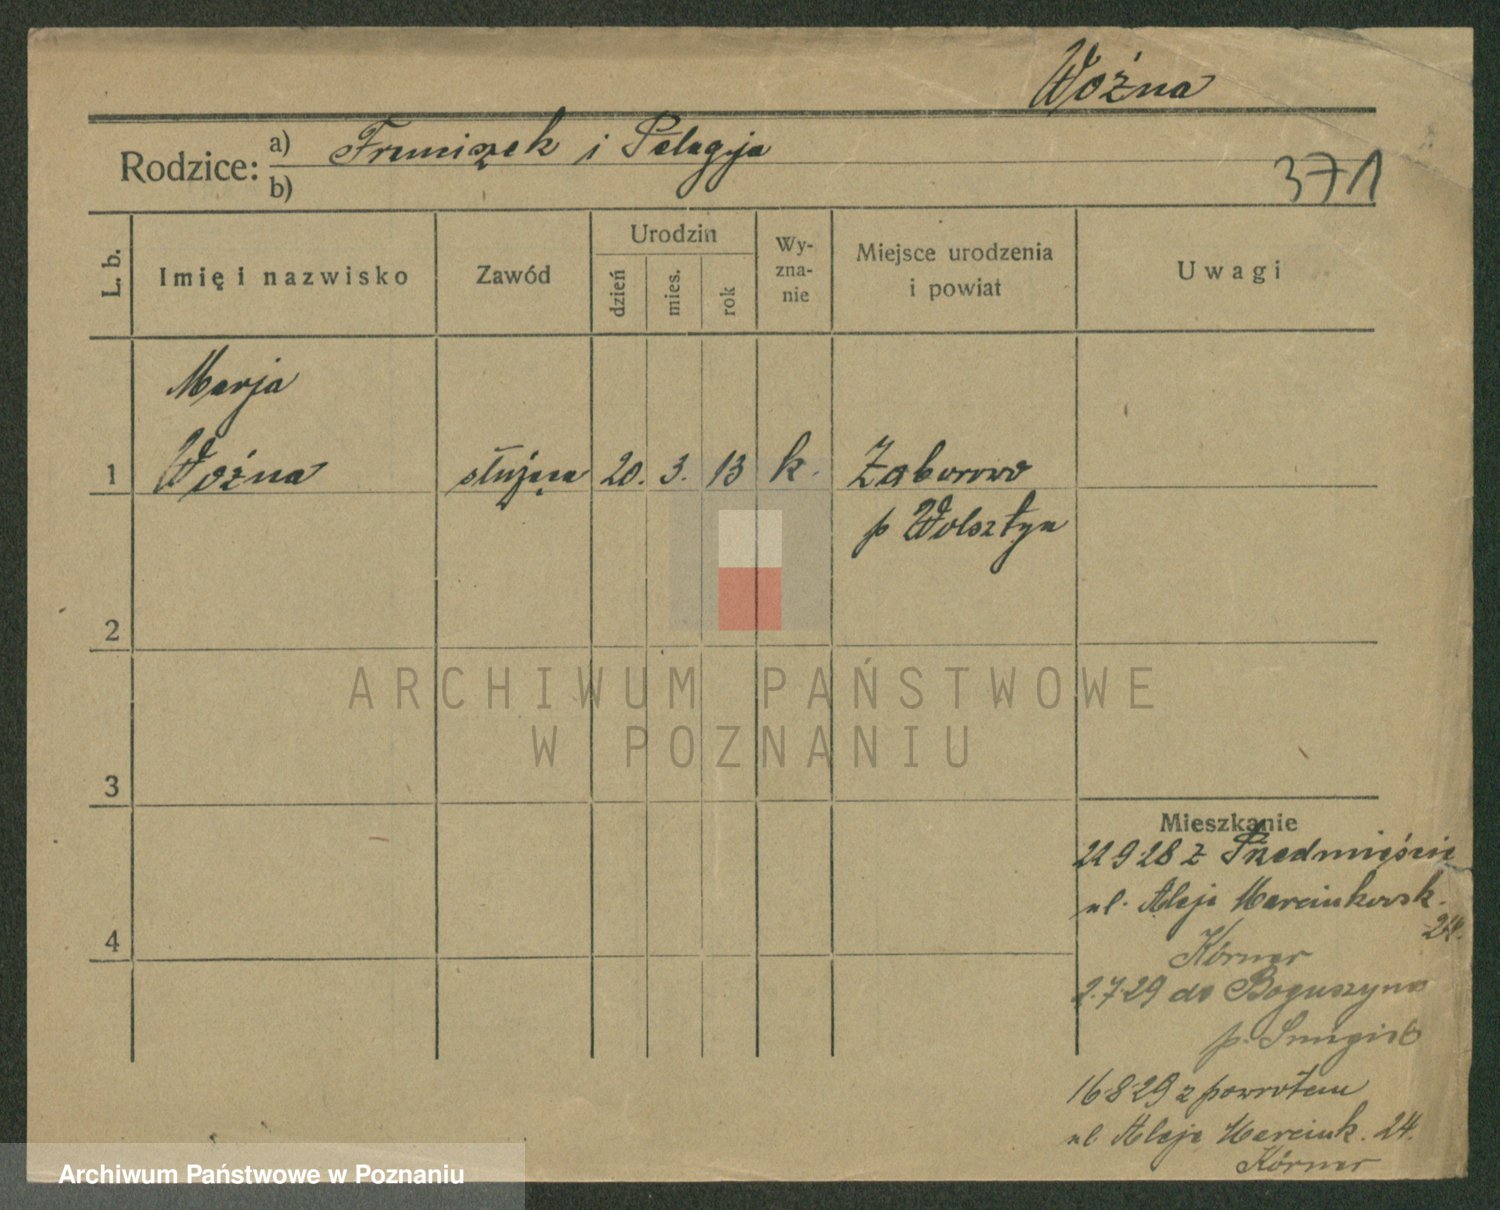 Woźna
Rodzice: a) Franciszek i Pelagja
b)
371
L. b.
Imię i nazwisko
Zawód
Urodzin
dzień
mies.
rok
Wy-
zna-
nie
Miejsce urodzenia
i powiat
Uwagi
Marja
1 Woźna służąca 20. 3. 13 k. Zaborowo
p Wolsztyn
2
3
4
Mieszkanie
22 9 28 z Przedmieście
ul. Aleje Marcinkowsk.
24.
Körner
2.7.29 do Boguszyna
p. Smigiel
16 8 29 z powrotem
ul Aleje Marcink. 24.
Körner
ARCHIWUM PAŃSTWOWE
W POZNANIU
Archiwum Państwowe w Poznaniu